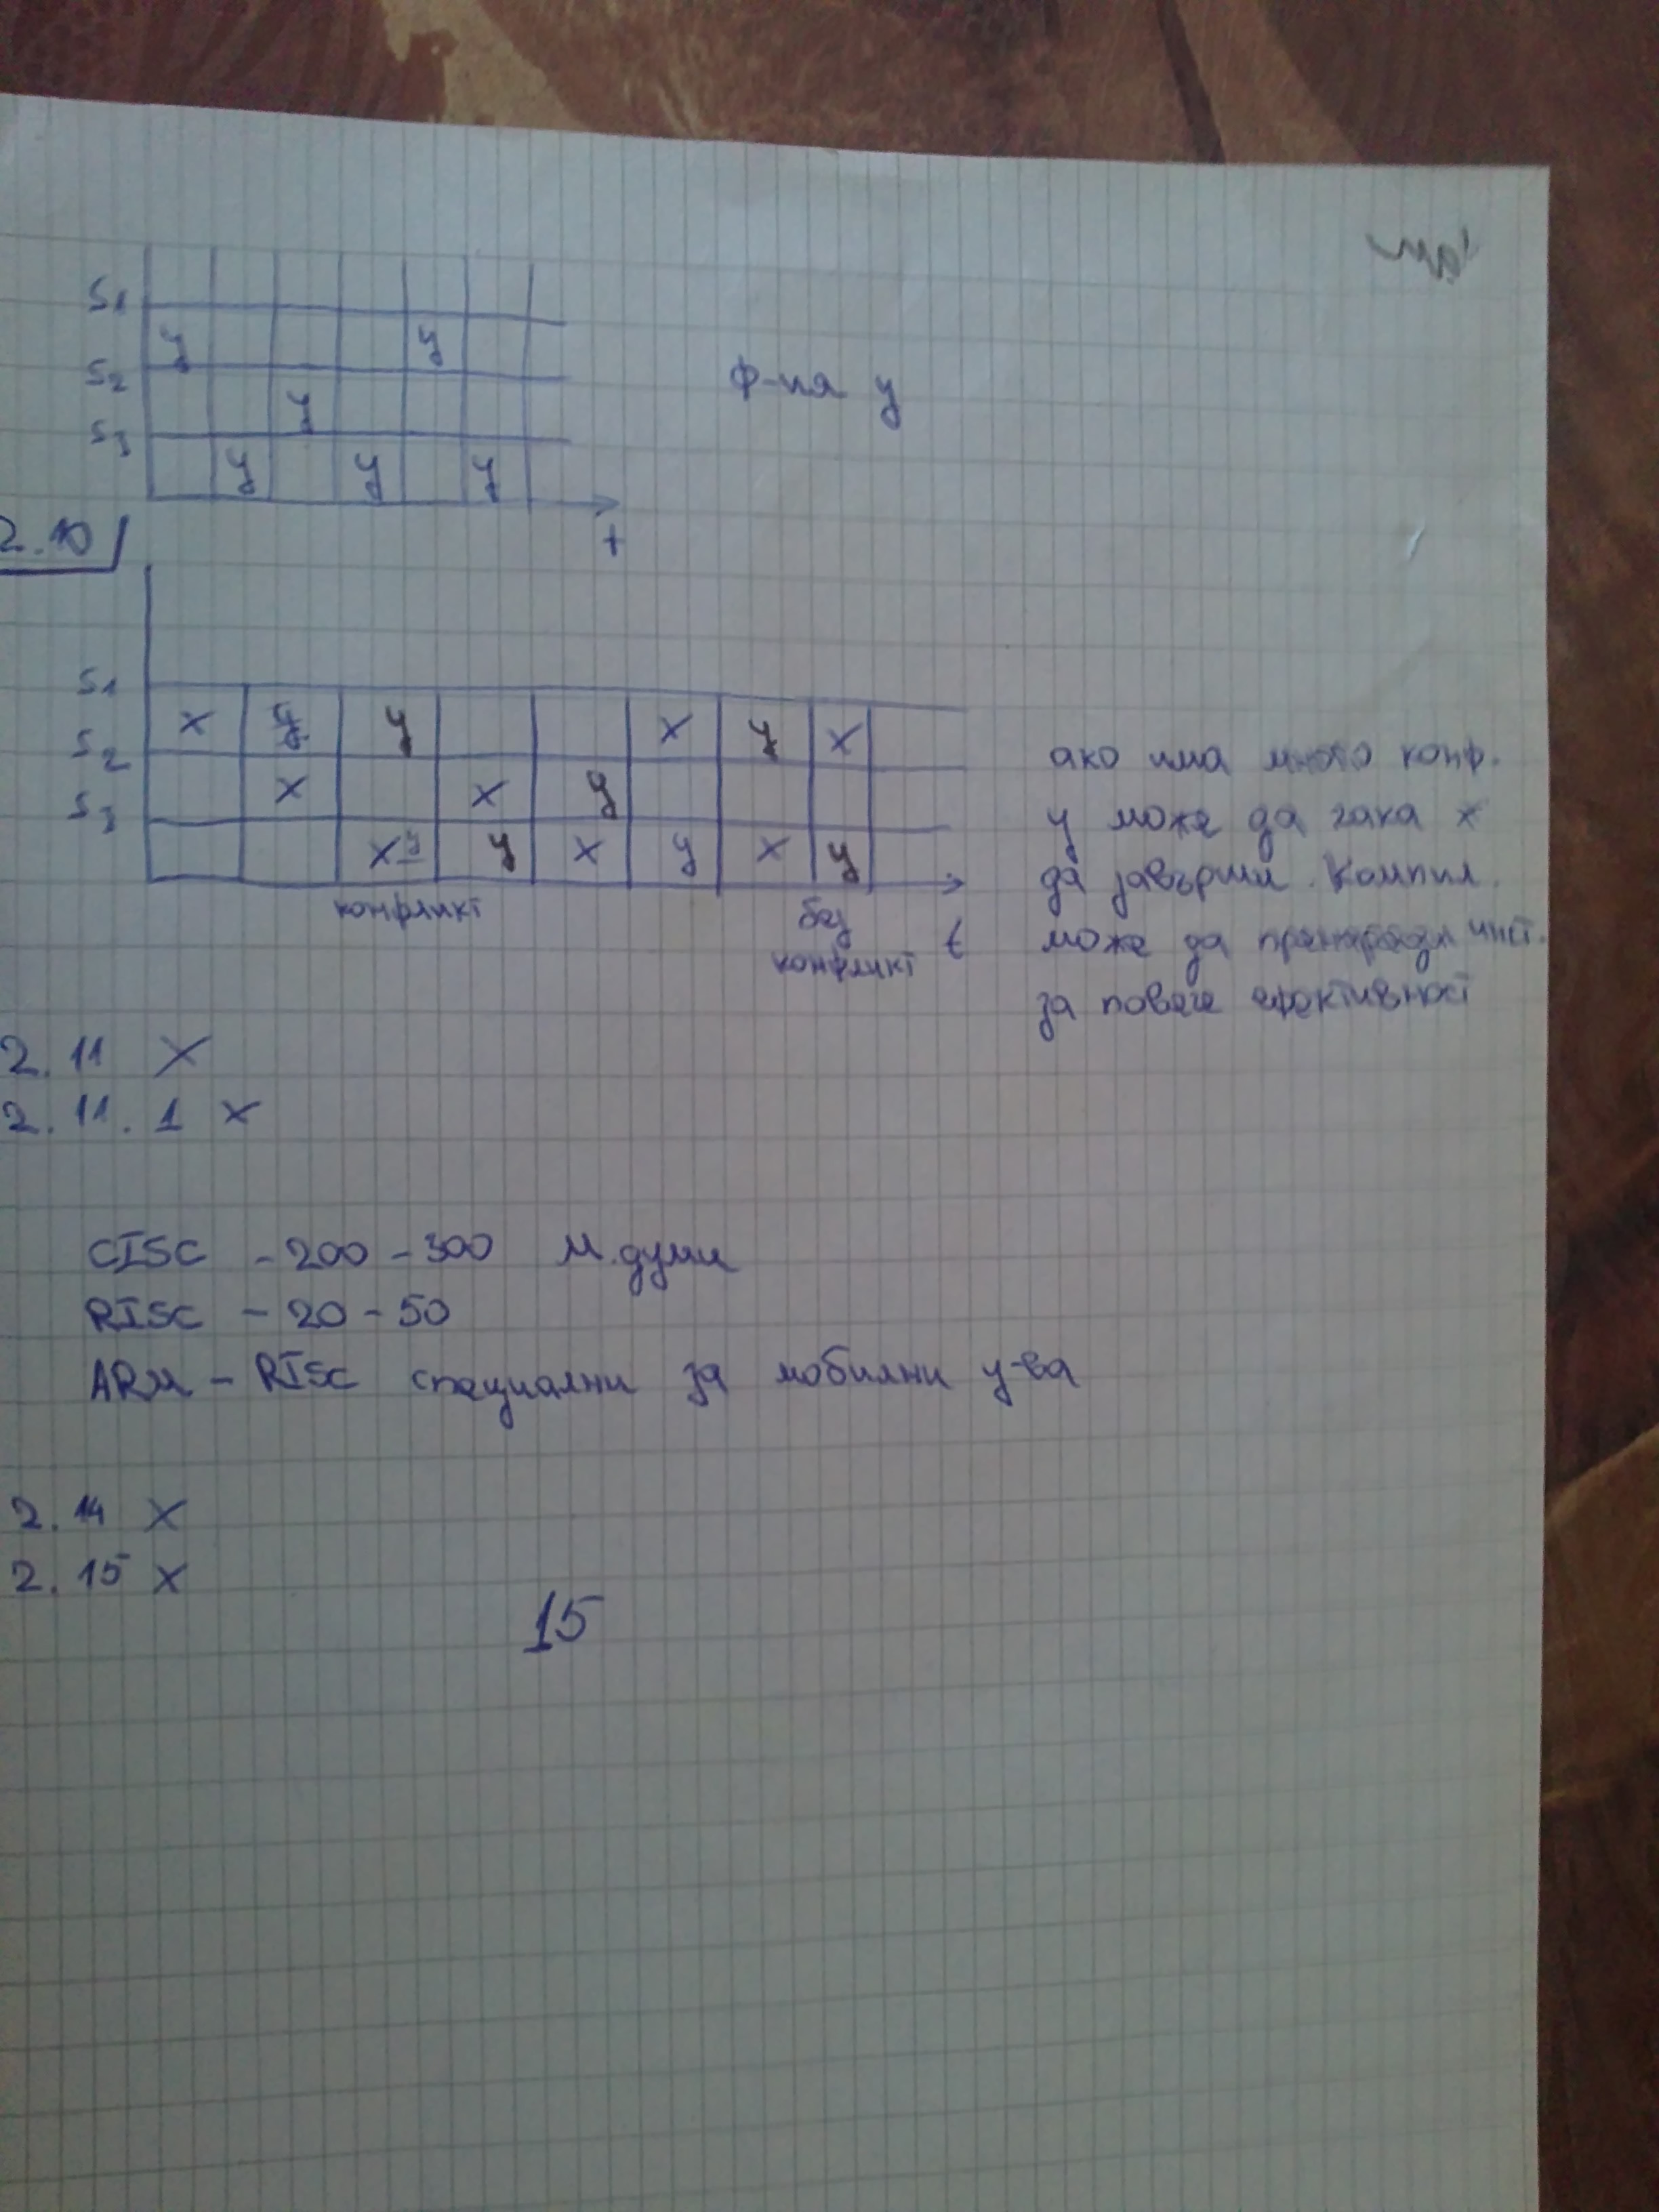 S1
y y
S2
y
ф-ия y
S3
y y y
t
2.10
S1
x y y x y x
S2
x x y
S3
x y y x y x y
конфликт
без
конфликт
t
ако има много конф.
y може да чака x
да завърши. Компил.
може да пренареди инст.
за повече ефективност
2.11 X
2.11.1 X
CISC - 200 - 300 М. думи
RISC - 20 - 50
ARM - RISC специални за мобилни у-ва
2.14 X
2.15 X
15